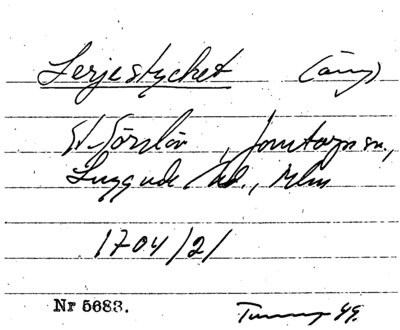 Lerjestycket (äng)
St. Görslöv, Jonstorps sn.,
Luggude hd., Mlm
1704/21
Nr 5683.
49.